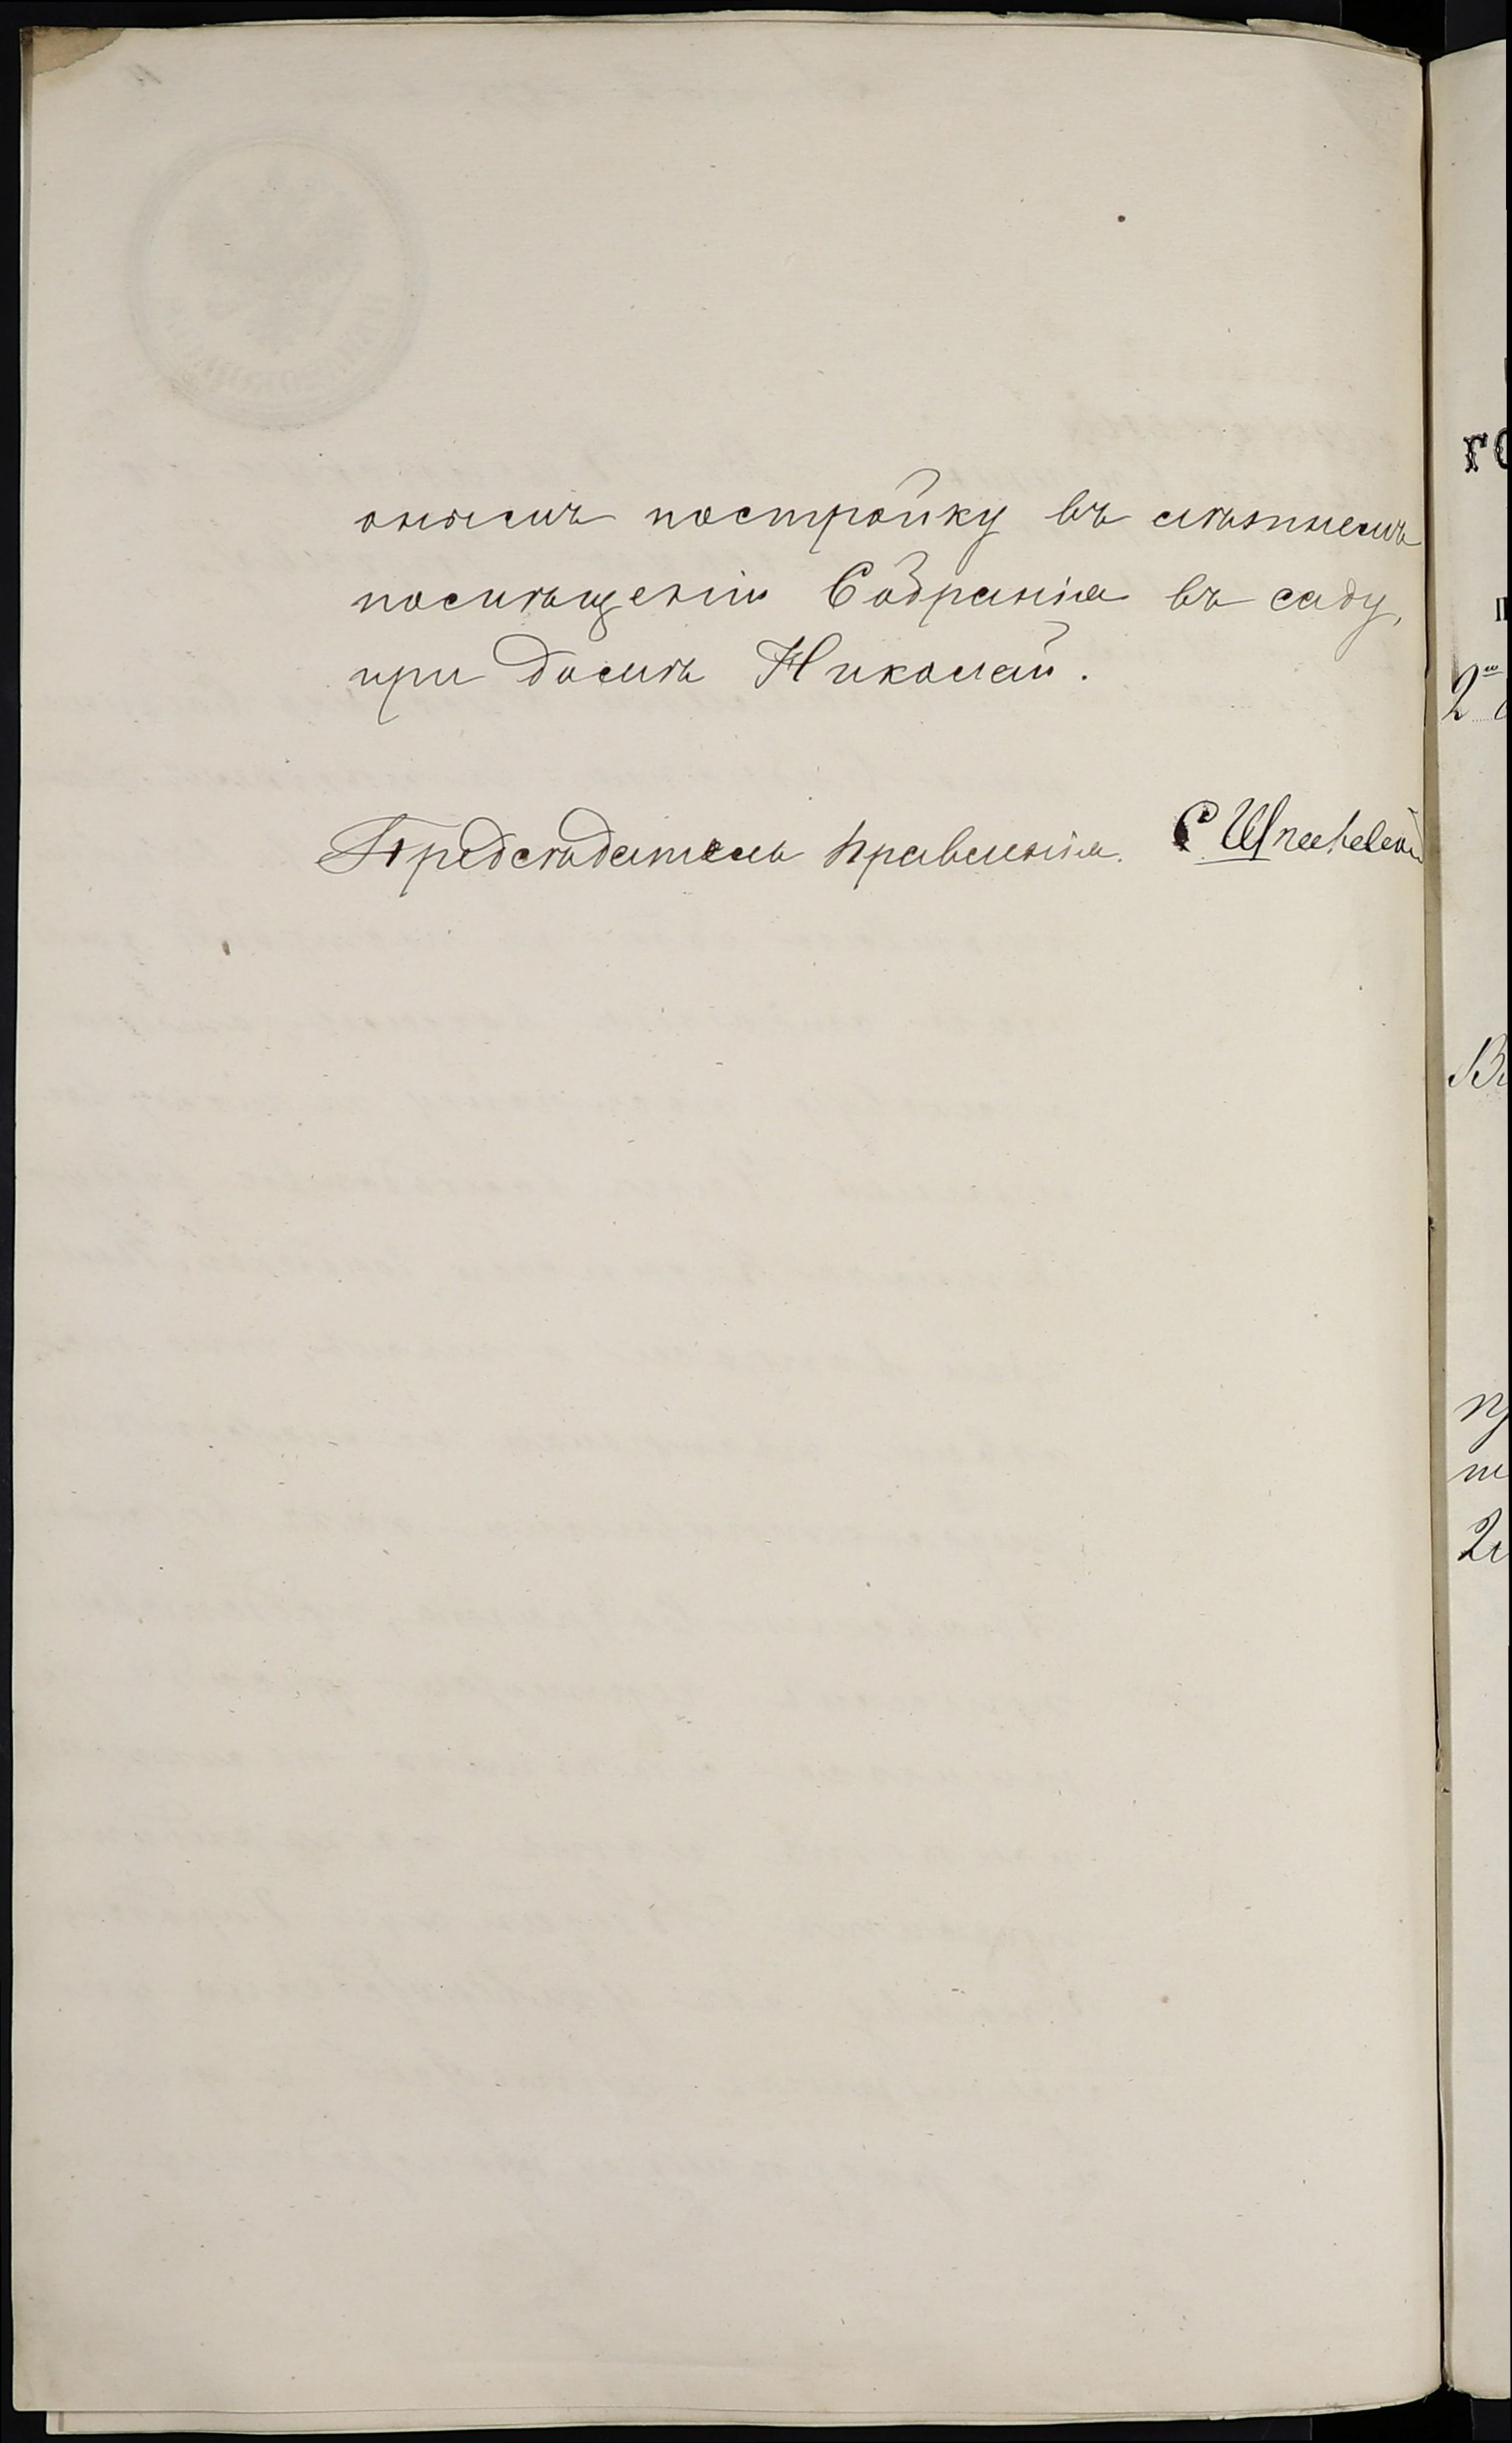 онымъ постройку въ лѣтнемъ
помѣщеніи Собранія въ саду,
при домѣ Николай.
Предсѣдатель Правленія. С
го
2